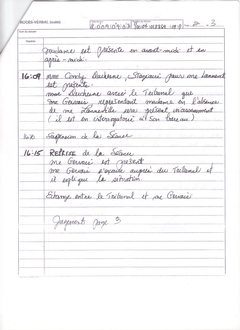 PROCÈS-VERBAL (suite)
madame est présente en avant-midi et en
après-midi.
16:09 Mme Lacheure, Stagiaire pour me Lamont
est présente.
Mme Lacheure avise le Tribunal que
me Gervais, représentant madame en l'absence
de me sera présent incessamment
(il est en interrogatoire à son bureau)
Suspension de la Séance
16:15 REPRISE de la Séance
me Gervais est présent
me Gervais s'excuse auprès du Tribunal et
il explique la situation.
Échange entre le Tribunal et me Gervais
Jugement page 3